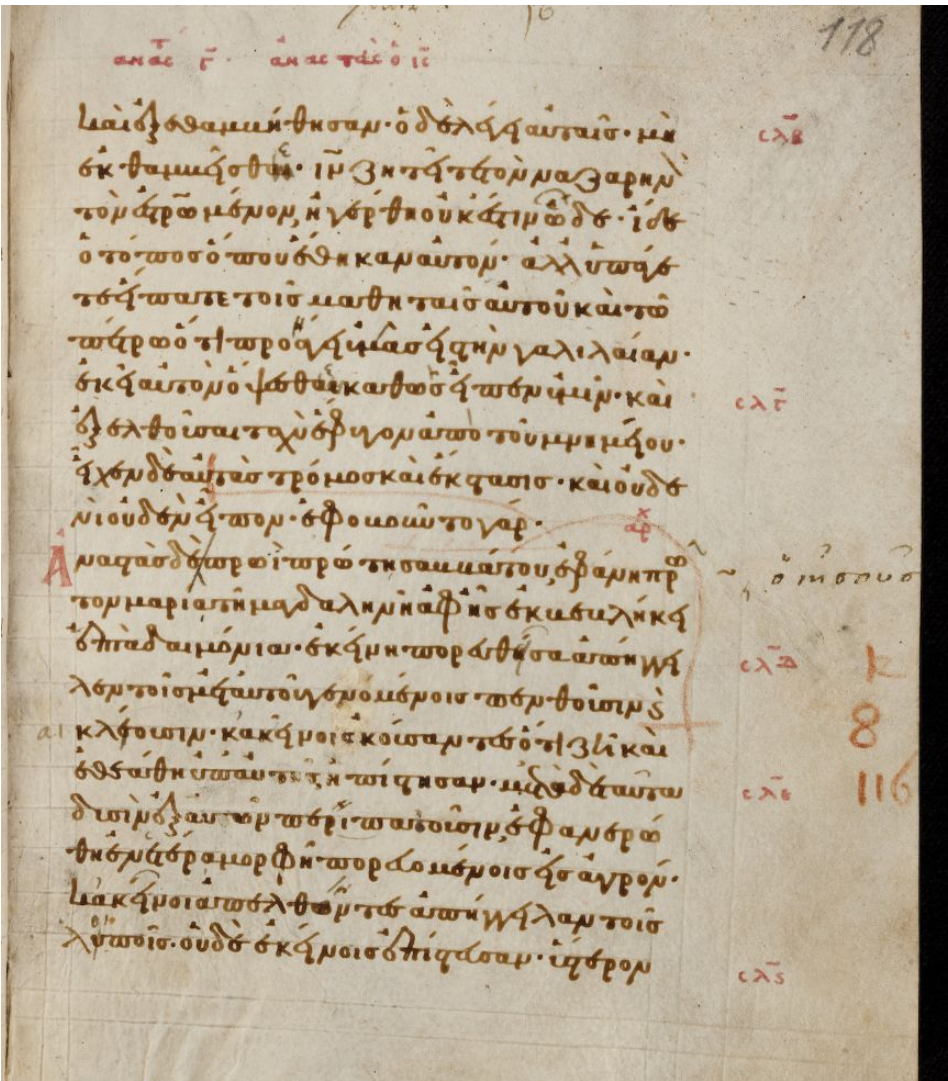 118
ανασ γ · αναστὰσ ὁ ις
καὶ ἐξεθαμβήθησαν· ὁ δὲ λέγει αὐταῖσ· μὴ
ἐκθαμβεῖσθαι· ιν ζητεῖτε τὸν ναζαρηνὸν
τὸν ἐσταυρωμένον, ἠγέρθη οὐκ ἔστιν ὧδε· ἴδε
ὁ τόποσ ὅπου ἔθηκαν αὐτόν· ἀλλ ὑπάγε
τε εἴπατε τοῖσ μαθηταῖσ αὐτοῦ καὶ τῶ
πέτρω ὅτι προάγει ὑμᾶσ εἰσ τὴν γαλιλαίαν·
ἐκεῖ αὐτὸν ὄψεσθαι καθὼσ εἶπεν ὑμῖν· καὶ
ἐξελθοῦσαι ταχὺ ἔφυγον ἀπὸ τοῦ μνημείου·
εἶχεν δὲ αὐτὰσ τρόμοσ καὶ ἔκστασισ· καὶ οὐδε
νὶ οὐδὲν εἶπον· ἐφοβοῦντο γάρ·
αρχ
Ἀναστὰσ δὲ πρωῒ πρώτη σαββάτου, ἐφάνη πρω
ὁ ιησουσ
τον μαρία τῆ μαγδαληνῆ ἀφ ἧσ ἐκβεβλήκει
ἑπτὰ δαιμόνια· ἐκείνη πορευθεῖσα ἀπήγγει
λεν τοῖσ μετ αὐτοῦ γενομένοισ πενθοῦσιν καὶ
κλαίουσιν· κἀκεῖνοι ἀκούσαντεσ ὅτι ζῆ καὶ
ἐθεάθη ὑπ αὐτῆσ ἠπίστησαν· μετὰ δὲ ταῦτα
δυσὶν ἐξ αὐτῶν περιπατοῦσιν, ἐφανερώ
θη ἐν ἑτέρα μορφῆ πορευομένοισ εἰσ ἀγρόν·
κἀκεῖνοι ἀπελθόντεσ ἀπήγγειλαν τοῖσ
λοιποῖσ· οὐδὲ ἐκείνοισ ἐπίστευσαν· ὕστερον
σλβ
σλγ
σλδ
σλε
σλς
8
116